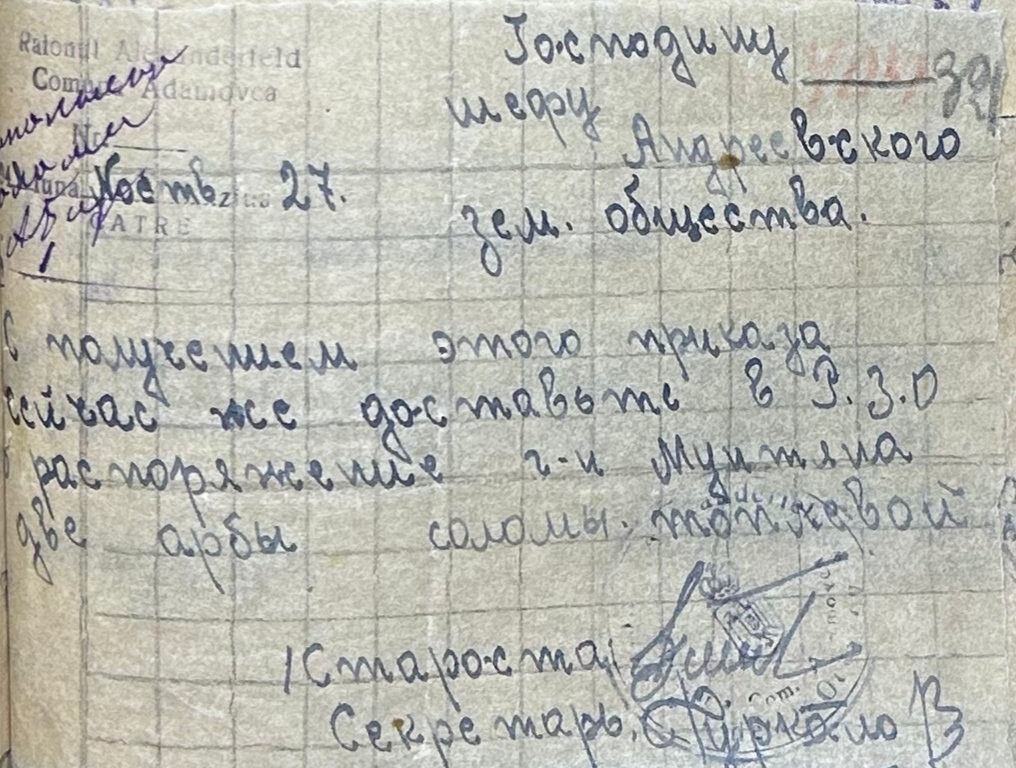 Raionul Alexanderfeld
Comuna Adamovca
No.
27.
Господину
шефу
Андреевского
зем. общества.
С получением этого приказа
сейчас же доставьте в Р.З.О
в распоряжение г-н Мунтяна
две арбы соломы топкевой
Староста
Секретарь